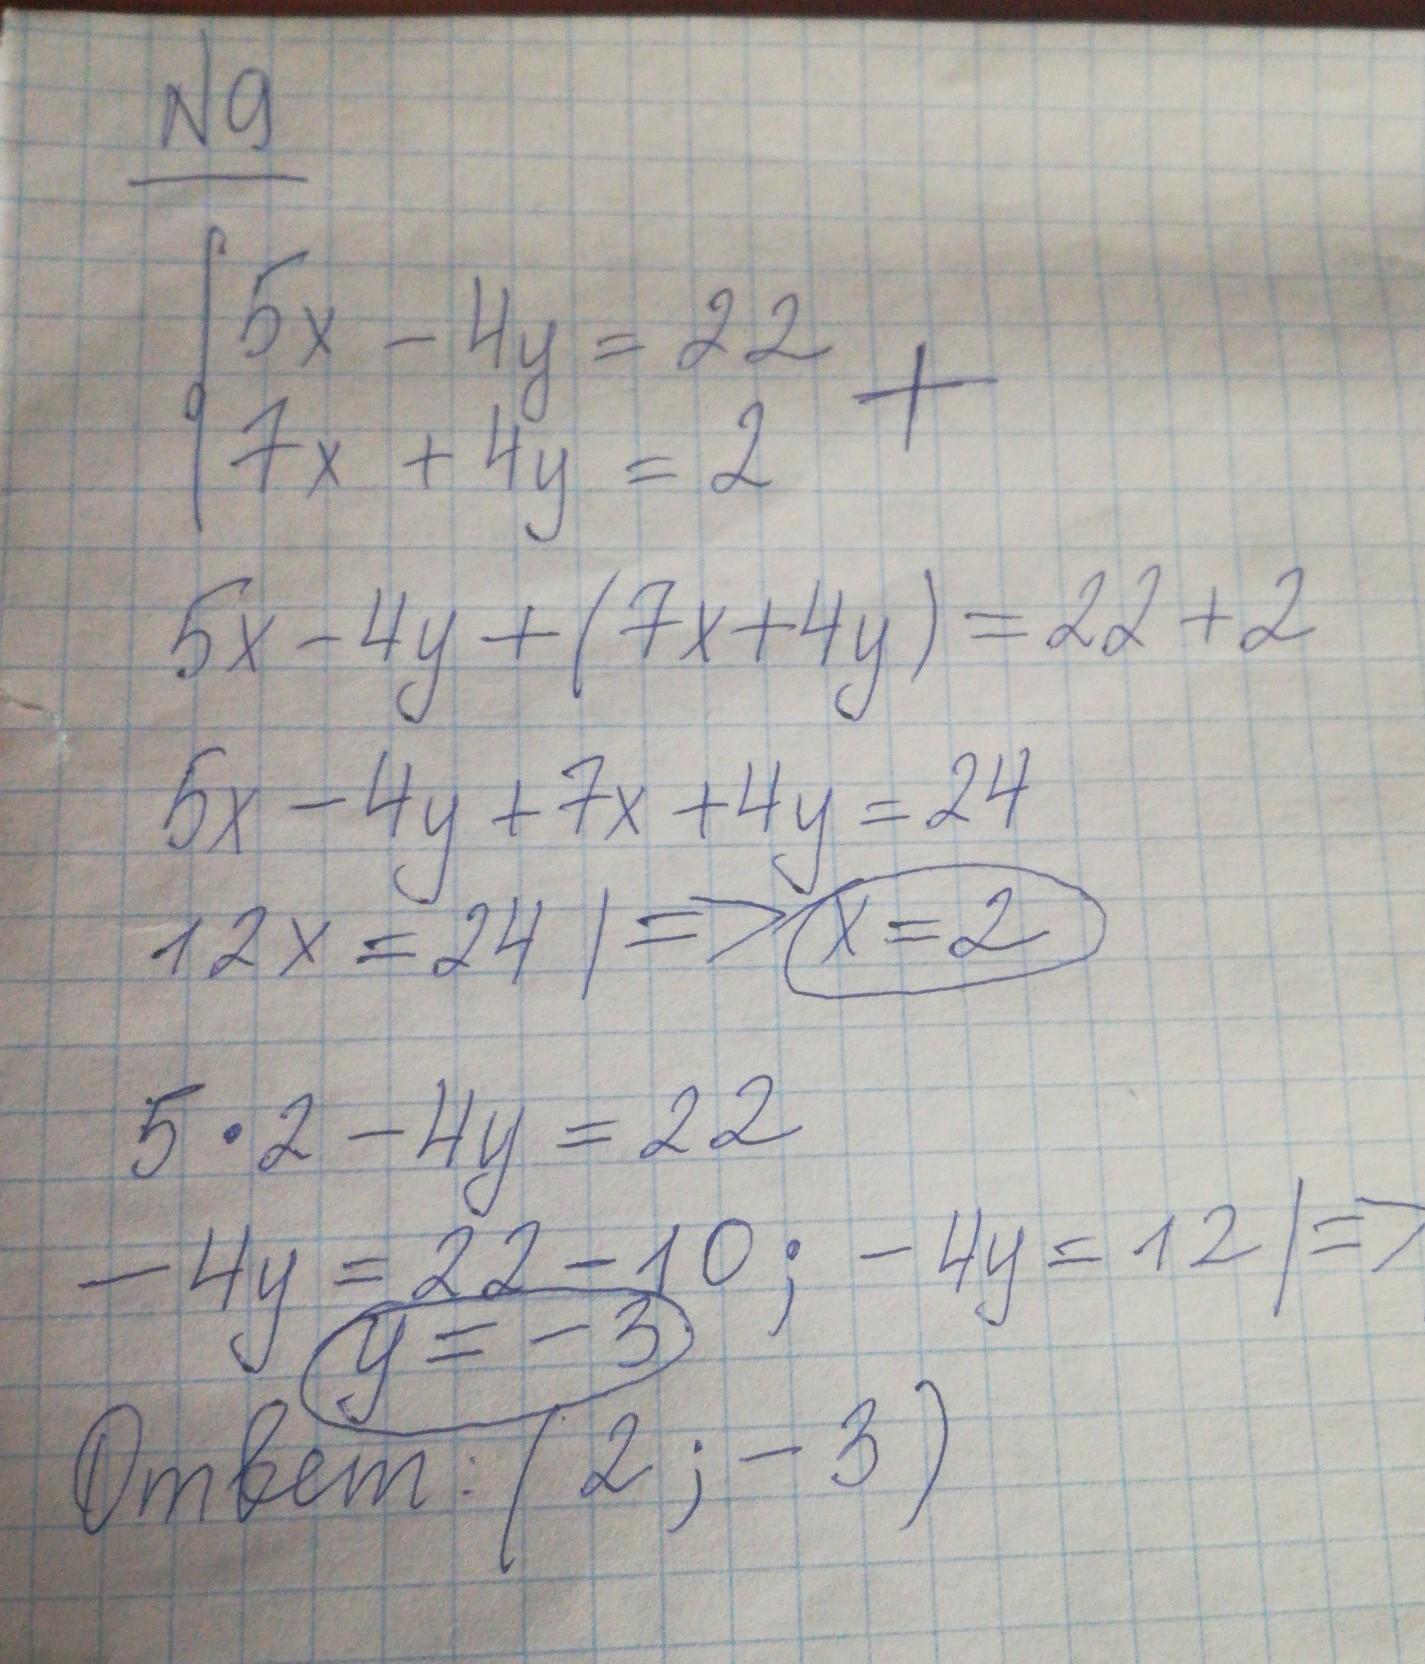 N9
5x - 4y = 22
7x + 4y = 2 +
5x - 4y + (7x + 4y) = 22 + 2
5x - 4y + 7x + 4y = 24
12x = 24 | => x = 2
5 · 2 - 4y = 22
- 4y = 22 - 10; - 4y = 12 | =>
y = - 3
Ответ: (2; - 3)